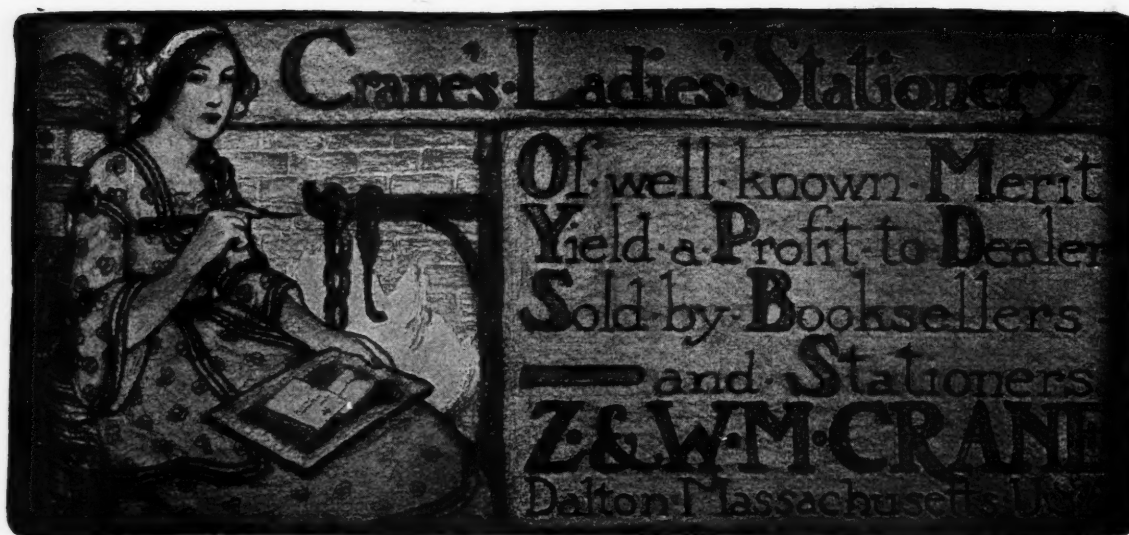 Crane's·Ladies'·Stationery·
Of·well·known·Merit
Yield·a·Profit·to·Dealer
Sold·by·Booksellers
and·Stationers
Z·&·W·M·CRANE
Dalton·Massachusetts·U